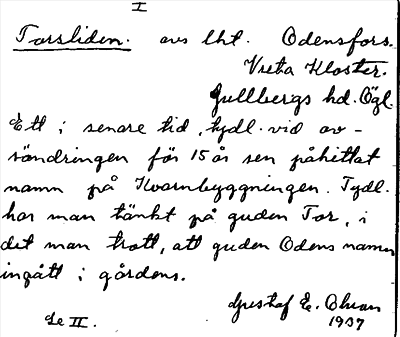 I
Torsliden. avs lht. Odensfors.
Vreta Kloster.
Gullbergs hd. Ögl.
Ett i senare tid, tydl. vid av-
söndringen för 15 år sen påhittat
namn på Kvarnbyggningen. Tydl.
har man tänkt på guden Tor, i
det man trott, att guden Odens namn
ingått i gårdens.
Gustaf E. Ohman
1937
Se II.